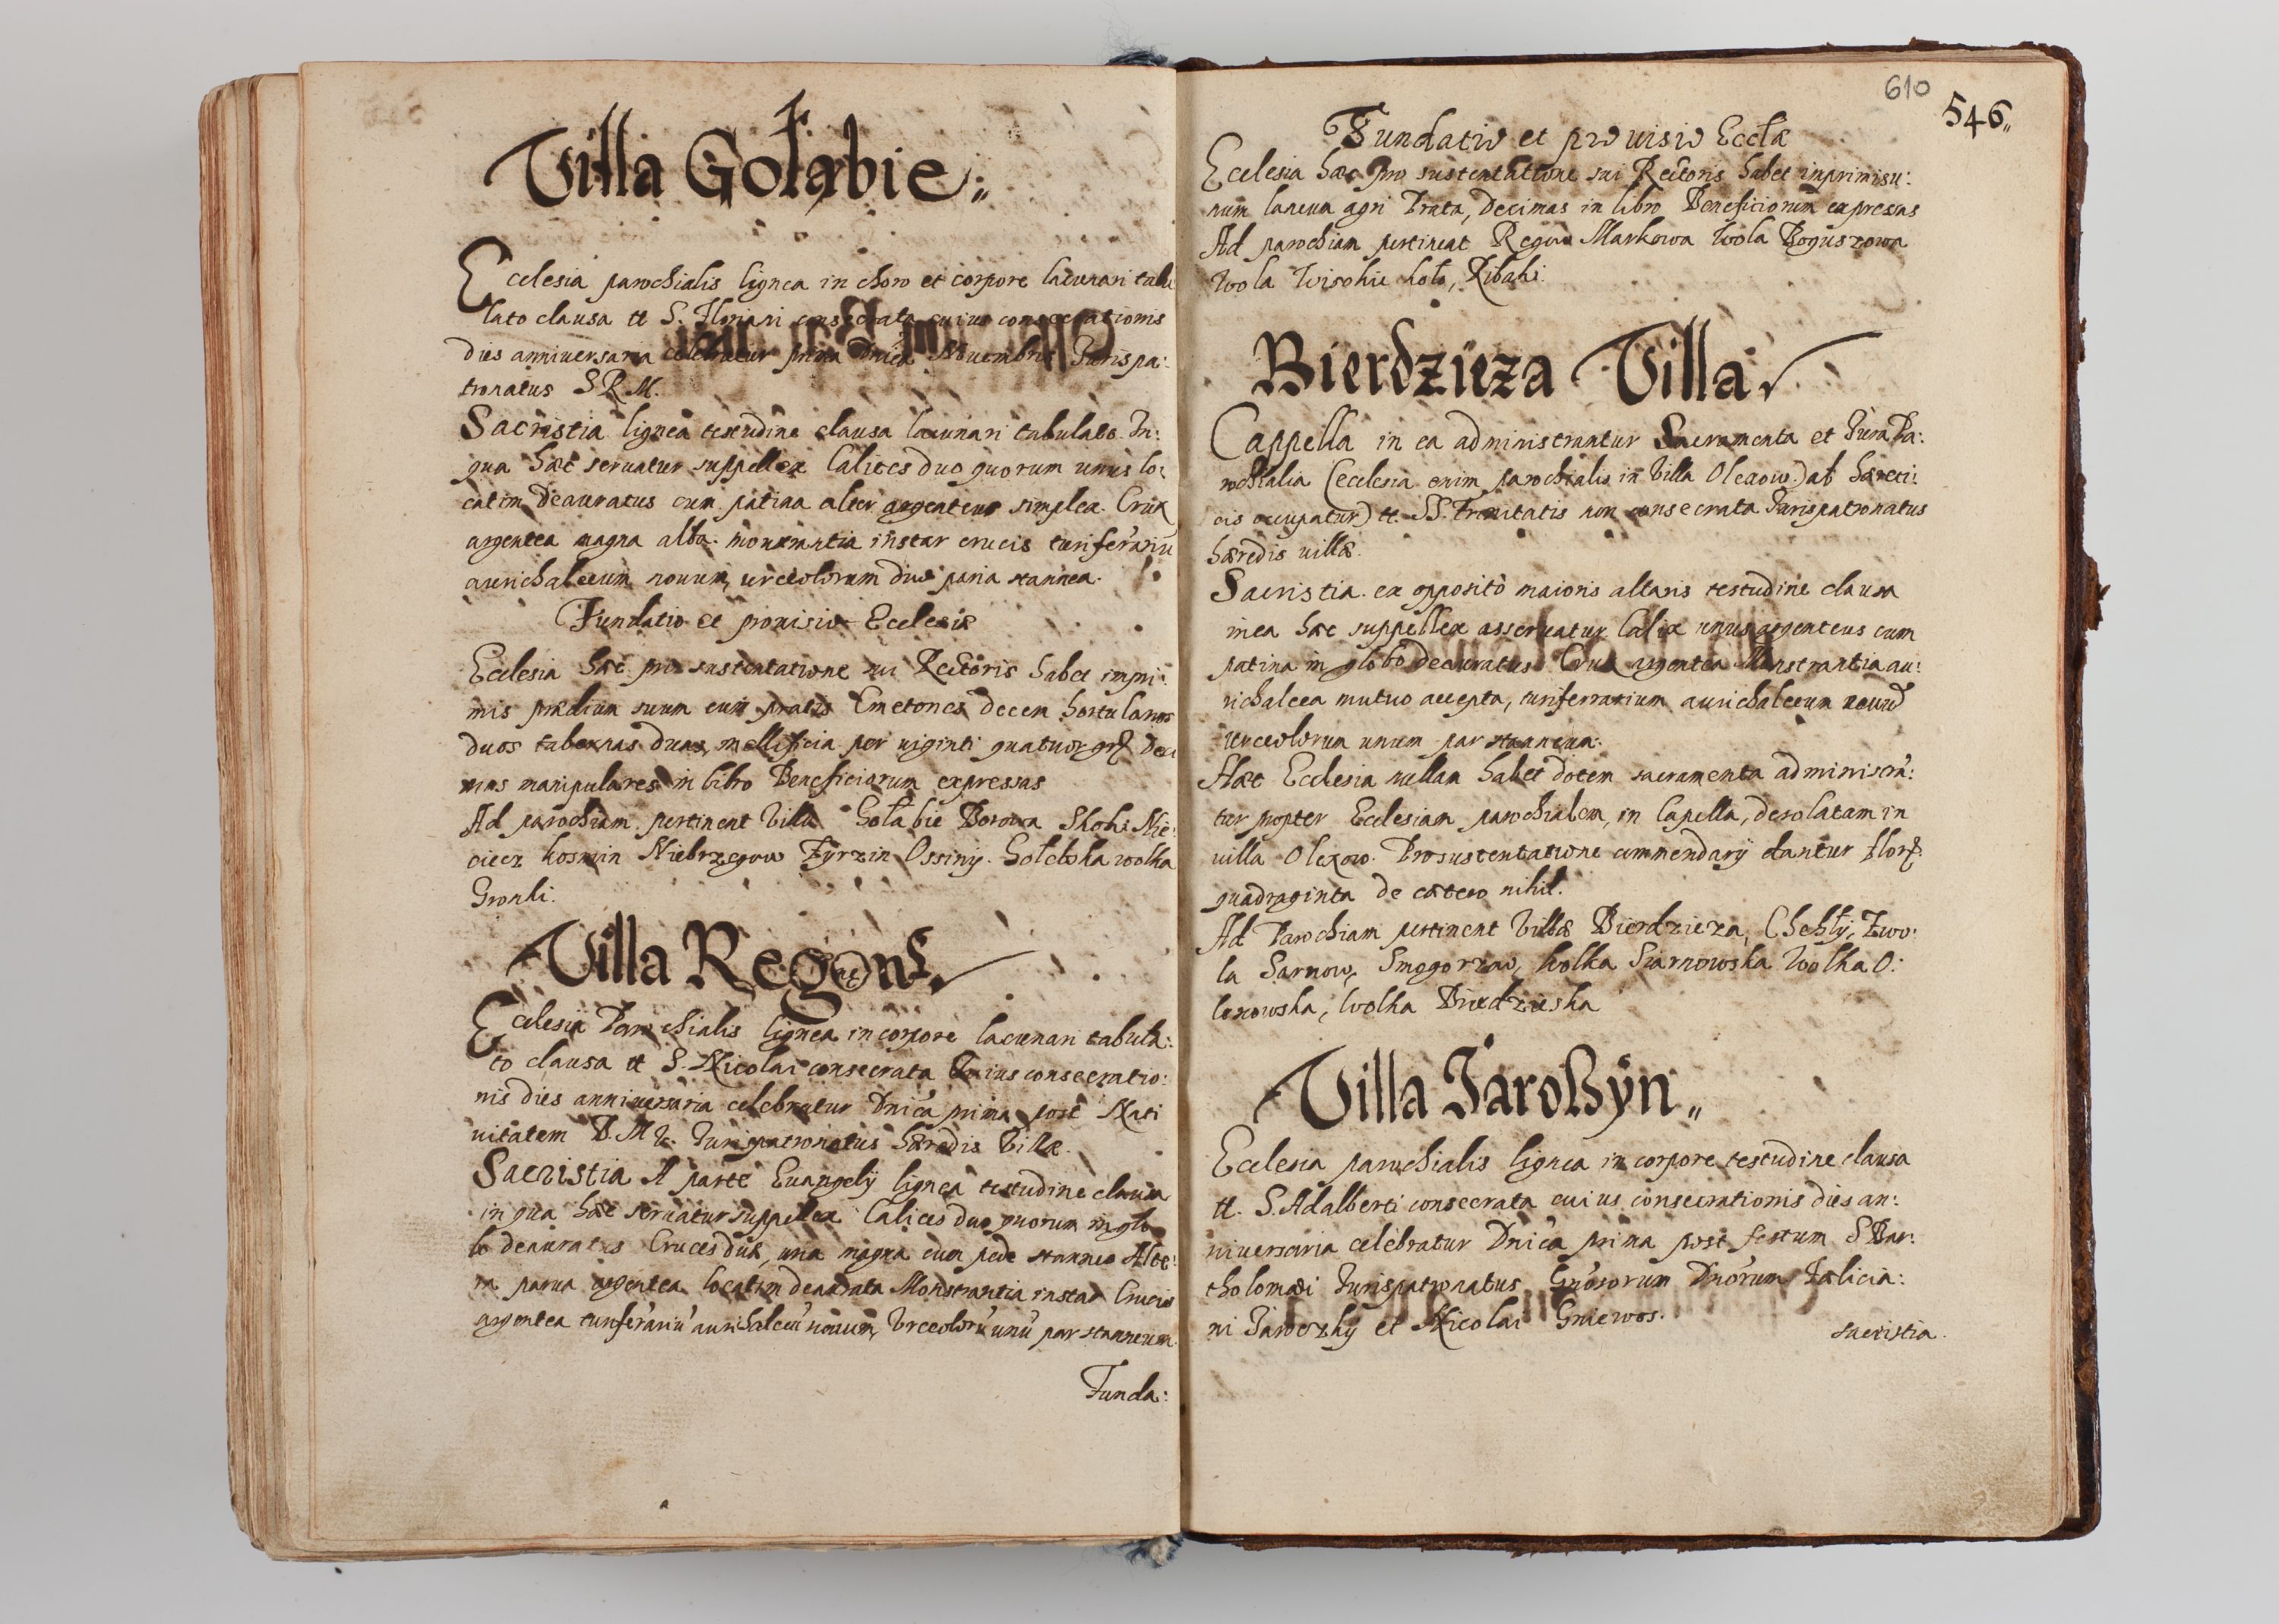 Villa Gołąbie„
Ecclesia parochialis lignea in choro et corpore lacunari tabu
lato clausa tt S. Floriani consecrata cuius consecrationis
dies anniuersaria celebratur prima Dnica Nouembris Jurispa:
tronatus S R M.
Sacristia lignea testudine clausa lacunari tabulato. In:
qua haec seruatur suppellex Calices duo quorum unus lo:
catim deauratus cum patina alter argenteus simplex. Crux
argentea magna alba. monstrantia instar crucis turiferariu
aurichalceum nouum, urceolorum duo paria stannea.
Fundatio et prouisio Ecclesiae
Ecclesia haec pro sustentatione sui Rectoris habet inpri:
mis praedium suum cum pratis Cmetones decem hortulanos
duos tabernas duas, mellificia per uiginti quatuor gr. deci
mas manipulares in libro Beneficiorum expressas
Ad parochiam pertinent Villa Gołąbie Borowa Skoki Nie:
ciecz kosmin Niebrzegow Zyrzin Ossiny. Gołebska wolka
Gronki.
Villa Regow
Ecclesia Parochialis lignea in corpore lacunari tabula:
to clausa tt S. Nicolai consecrata Cuius consecratio:
nis dies anniuersaria celebratur Dnica prima post Nati
uitatem B. M V. Jurispatronatus haeredis Villae.
Sacristia A parte Euangelÿ lignea testudine clausa
in qua haec seruatur suppellex Calices duo quorum in glo
bo deauratus Cruces duae, una magna cum pede stanneo Alte:
ra parua argentea locatim deaurata Monstrantia instar Crucis
argentea turiferariu aurichalceu nouum, Urceoloru unu par stanneum.
Funda:
610
546„
Fundatio et prouisio Eccla
Ecclesia haec pro sustentatione sui Rectoris habet inprimis u:
num laneum agri Prata, Decimas in libro Beneficiorum expressas
Ad parochiam pertineat Regow Markowa Wola Boguszowa
Wola Kibaki.
Bierdzieza Villa
Cappella in ea administrantur Sacramenta et Jura Pa:
rochialia (ecclesia enim parochialis in Villa Olexow. ab haereti:
cis occupatur) tt. SS. Trinitatis non consecrata Jurispatronatus
haeredis uillae.
Sacristia ex opposito maioris altaris testudine clausa
in ea haec suppellex asseruatur Calix unus argenteus cum
patina in globo deauratus Crux argentea Monstrantia au:
richalcea mutuo accepta, turiferrarium aurichalceum
urceolorum unum par stanneum.
Haec Ecclesia nullam habet dotem sacramenta administra:
tur propter Ecclesiam parochialem, in Capella, desolatam in
uilla Olexow. Pro sustentatione commendarÿ dantur flor.
quadraginta de caetero nihil.
Ad Parochiam pertinent Villae Bierdzieza, Chechły, Zwo:
la Sarnow, Smogorzow, Wolka Siarnowska Wolka O:
lexowska, Wolka Bierdzieska
Villa Jaroßÿn„
Ecclesia parochialis lignea in corpore testudine clausa
tt. S. Adalberti consecrata cuius consecrationis dies an:
niuersaria celebratur Dnica prima post festum S Bar:
tholomaei Jurispatronatus Gnosorum Dnorum Felicia:
ni Jaroczky et Nicolai Gniewos.
sacristia